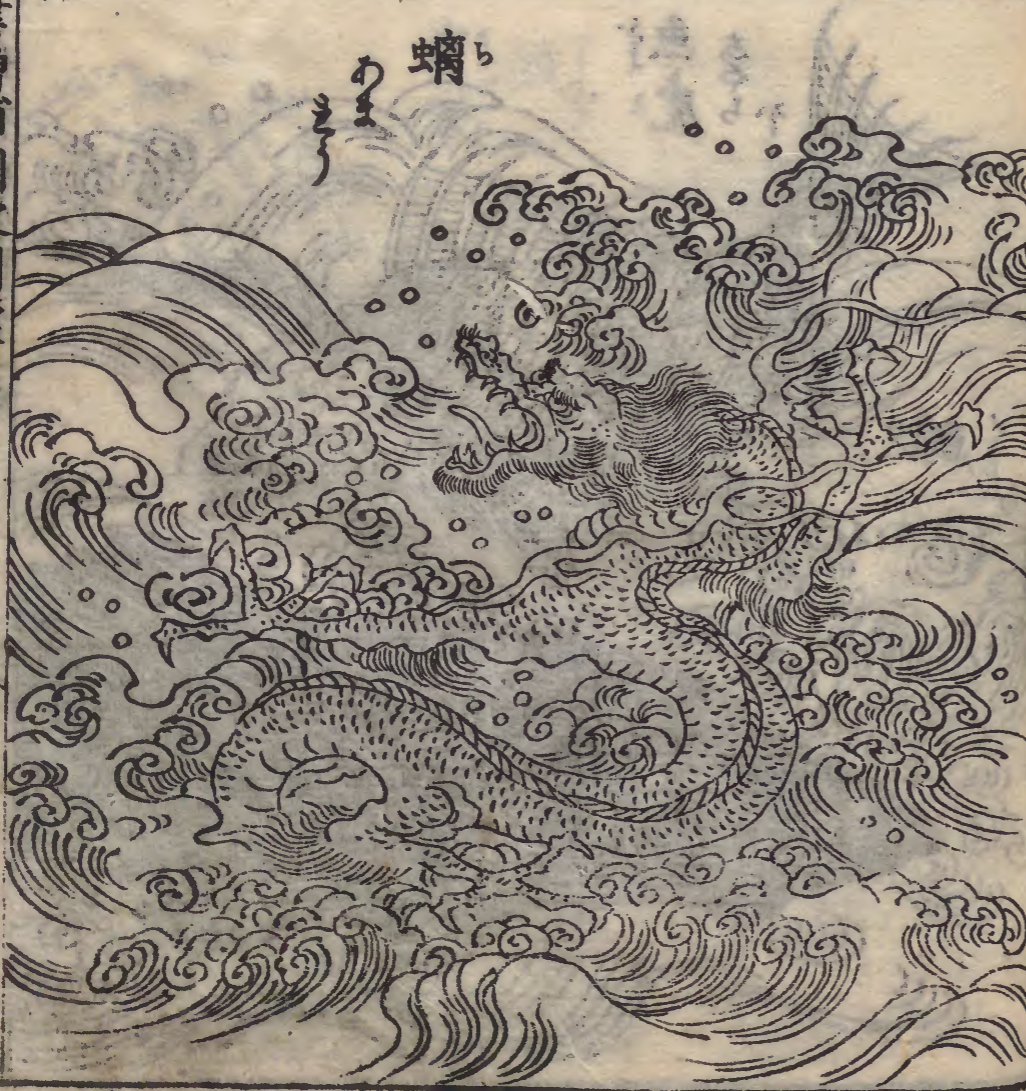 螭ち
あま
りう